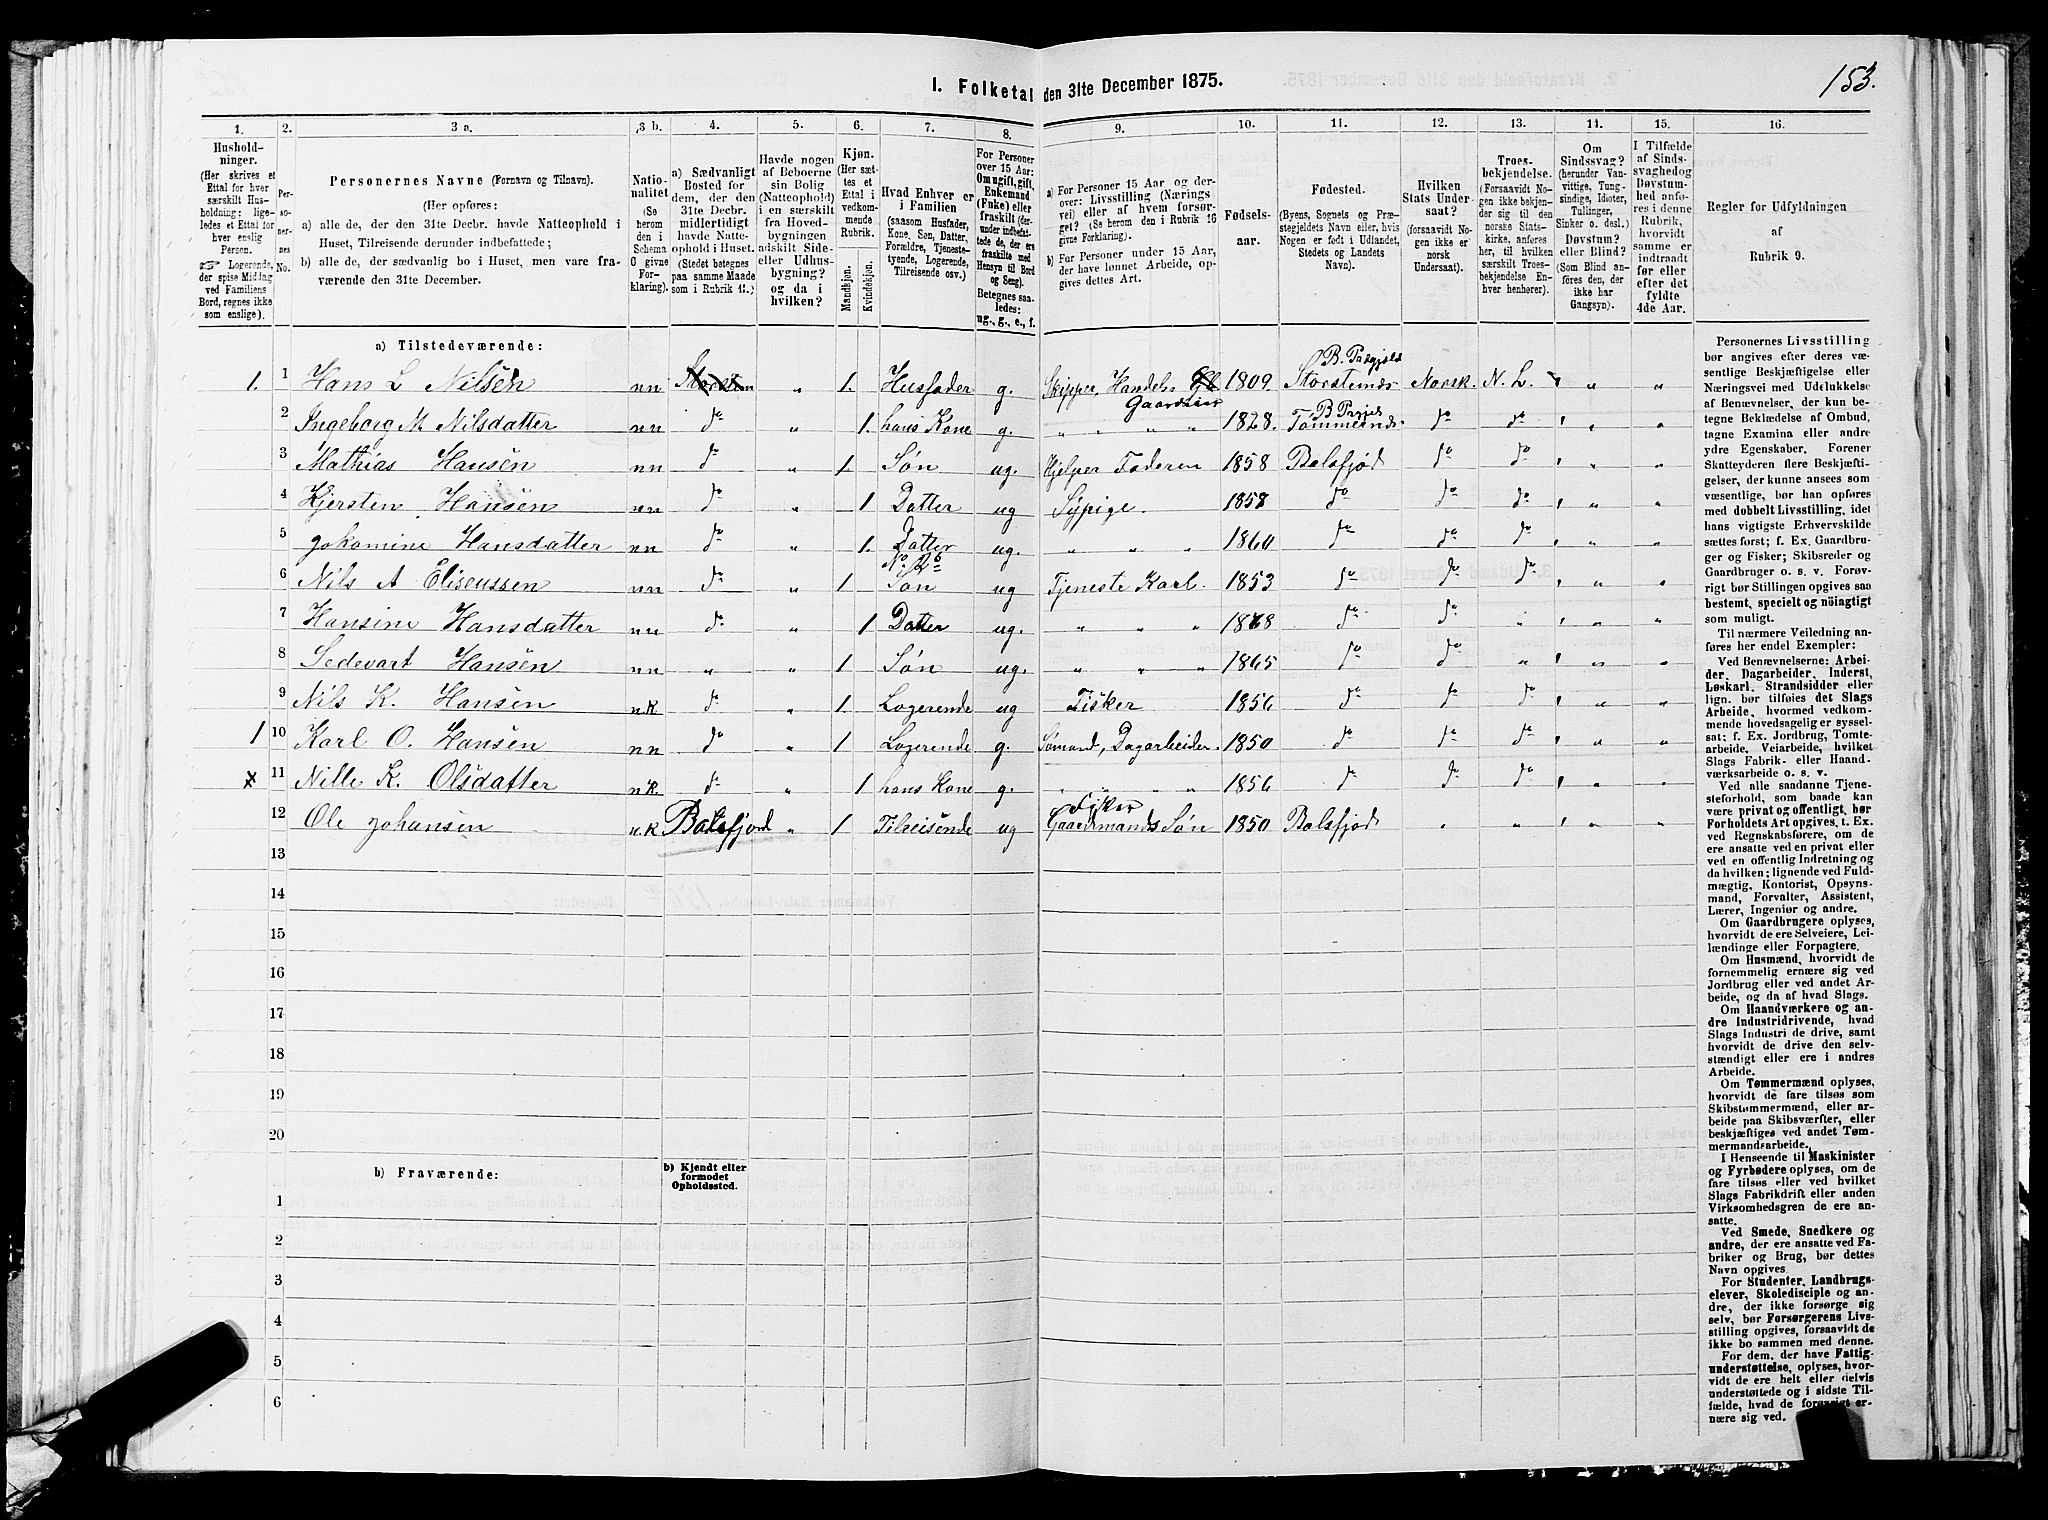 153.
I. Folketal den 31te December 1875.
1. 2. 3 a. 3 b. 4. 5. 6. 7. 8. 9. 10. 11. 12. 13. 14. 15. 16.
Husholdninger.
(Her skrives et
Ettal for hver
særskilt Husholdning;
ligeledes et Ettal for
hver enslig
Person.
Logerende,
der spise Middag
ved Familiens
Bord, regnes ikke
som enslige).
Personernes No.
Personernes Navne (Fornavn og Tilnavn).
(Her opføres:
a) alle de, der den 31te Decbr. havde Natteophold i
Huset, Tilreisende derunder indbefattede;
b) alle de, der sædvanlig bo i Huset, men vare fraværende
den 31te December.
Nationalitet
(Se
herom
den i
Schema
O givne
Forklaring).
a) Sædvanligt
Bosted for
dem, der den
31te Decbr.
midlertidigt
havde Natteophold
i Huset.
(Stedet betegnes
paa samme Maade
som i Rubrik 11.)
Havde nogen
af Beboerne
sin Bolig
(Natteophold)
i en særskilt
fra Hovedbygningen
adskilt Sideeller
Udhusbygning?
og da i
hvilken?
Kjøn.
(Her sættes
et
Ettal i
vedkommende
Rubrik.
Mandkjøn.
Kvindekjøn.
Hvad Enhver er
i Familien
(saasom Husfader,
Kone, Søn, Datter,
Forældre, Tjenestetyende,
Logerende,
Tilreisende osv.)
For Personer
over 15 Aar:
Om ugift, gift,
Enkemand
(Enke) eller
fraskilt (derunder
indbefattede
de, der ere
fraskilte med
Hensyn til Bord
og Seng).
Betegnes saaledes:
ug., g., e., f.
a) For Personer 15 Aar og derover:
Livsstilling (Næringsvei)
eller af hvem forsørget?
(Se herom den i Rubrik 16
givne Forklaring).
b) For Personer under 15 Aar,
der have lønnet Arbeide, opgives
dettes Art.
Fødselsaar.
Fødested.
(Byens, Sognets og Præstegjeldets
Navn eller, hvis
Nogen er født i Udlandet,
Stedets og Landets
Navn).
Hvilken
Stats Undersaat?
(forsaavidt Nogen
ikke er
norsk
Undersaat).
Troesbekjendelse.
(Forsaavidt Nogen
ikke bekjender
sig til den
norske Statskirke,
anføres
her, til hvilken
særskilt Troesbekjendelse
Enhver
henhører).
Om
Sindssvag?
(herunder Vanvittige,
Tungsindige,
Idioter,
Tullinger,
Sinker o. desl.)
Døvstum?
eller Blind?
(Som Blind anføres
den, der
ikke har
Gangsyn).
I Tilfælde
af Sindssvaghed
og
Døvstumhed
anføres
i denne
Rubrik,
hvorvidt
samme er
indtraadt
før eller
efter det
fyldte
4de Aar.
Regler for Udfyldningen
af
Rubrik 9.
a) Tilstedeværende:
1. 1 Hans L Nilsen nn „ 1. Husfader g. Skipper, Handels Gaardeier 1809. B. Præstegjeld Storstennæs Norsk. N. L. „ „
2 Ingeborg M Nilsdatter nn do „ 1. hans Kone g. „ „ „ 1828. do do „ „
3 Mathias Hansen nn do „ 1. Søn ug. Hjelper Faderen 1858 Balsfjod do do „ „
4 Kjersten Hansen nn do „ 1 Datter ug Sypige. 1858 do do do „ „
5 Johamine Hansdatter nn do „ 1. Datter ug. „ „ „ 1860 do do do „ „
6 Nils A Eliseussen nn do „ 1 Søn ug Tjeneste Karl. 1853 do do do „ „
7 Hansine Hansdatter nn do „ 1 Datter ug. „ „ „ 1868 do do „ „ „
8 Sedevart Hansen nn „ „ 1 Søn ug. „ „ „ 1865 do do „ „ „
9 Nils K. Hansen n.K do „ 1. Logerende ug Fisker 1856 do do do „ „
1 10 Karl O. Hansen nn do „ 1 Logerende g. Sømand, Dagarbeider. 1850 do do do „ „
x 11 Nille K. Olsdatter n.K. do „ 1 hans Kone g. „ „ „ 1856 do do do „ „
12 Ole Johansen n.K. Balsfjord „ 1 Tilreisende ug Fisker Gaardmands Søn 1850 Balsfjod „ „ „ „
13
14
15
16
17
18
19
20
b) Fraværende:
b) Kjendt eller
formodet
Opholdssted.
1
2
3
4
5
6
Personernes Livsstilling
bør angives efter deres væsentlige
Beskjæftigelse eller
Næringsvei med Udelukkelse
af Benævnelser, der kun betegne
Beklædelse af Ombud,
tagne Examina eller andre
ydre Egenskaber. Forener
Skatteyderen flere Beskjæftigelser,
der kunne ansees som
væsentlige, bør han opføres
med dobbelt Livsstilling, idet
hans vigtigste Erhvervskilde
sættes først; f. Ex. Gaardbruger
og Fisker; Skibsreder og
Gaardbruger o. s. v. Forøvrigt
bør Stillingen opgives saa
bestemt, specielt og nöiagtigt
som muligt.
Til nærmere Veiledning anføres
her endel Exempler:
Ved Benævnelserne: Arbeider,
Dagarbeider, Inderst,
Løskarl, Strandsidder eller
lign. bør tilføies det Slags
Arbeide, hvormed vedkommende
hovedsagelig er sysselsat;
f. Ex. Jordbrug, Tomtearbeide,
Veiarbeide, hvilket
Slags Fabrik- eller Haandværksarbeide
o. s. v.
Ved alle saadanne Tjenesteforhold,
som baade kan
være privat og offentligt, bør
Forholdets Art opgives, t. Ex.
ved Regnskabsførere, om de
ere ansatte ved en privat eller
ved en offentlig Indretning og
da hvilken; lignende ved Fuldmægtig,
Kontorist, Opsynsmand,
Forvalter, Assistent,
Lærer, Ingeniør og andre.
Om Gaardbrugere oplyses,
hvorvidt de ere Selveiere, Leilændinge
eller Forpagtere.
Om Husmænd, hvorvidt de
fornemmelig ernære sig ved
Jordbrug eller ved andet Arbeide,
og da af hvad Slags.
Om Haandværkere og andre
Industridrivende, hvad
Slags Industri de drive, samt
hvorvidt de drive den selvstændigt
eller ere i andres
Arbeide.
Om Tømmermænd oplyses,
hvorvidt de fare tilsøs som
Skibstømmermænd, eller arbeide
paa Skibsværfter, eller
beskjæftiges ved andet Tømmermandsarbeide.
I Henseende til Maskinister
og Fyrbødere oplyses, om de
fare tilsøs eller ved hvilket
Slags Fabrikdrift eller anden
Virksomhedsgren de ere ansatte.
Ved Smede, Snedkere og
andre, der ere ansatte ved Fabriker
og Brug, bør dettes
Navn opgives.
For Studenter, Landbrugselever,
Skoledisciple og andre,
der ikke forsørge sig
selv, bør Forsørgerens Livsstilling
opgives, forsaavidt de
ikke bo sammen med denne.
For dem, der have Fattigunderstøttelse,
oplyses, hvorvidt
de ere helt eller delvis
understøttede og i sidste Tilfælde,
hvad de forøvrigt ernære
sig ved.